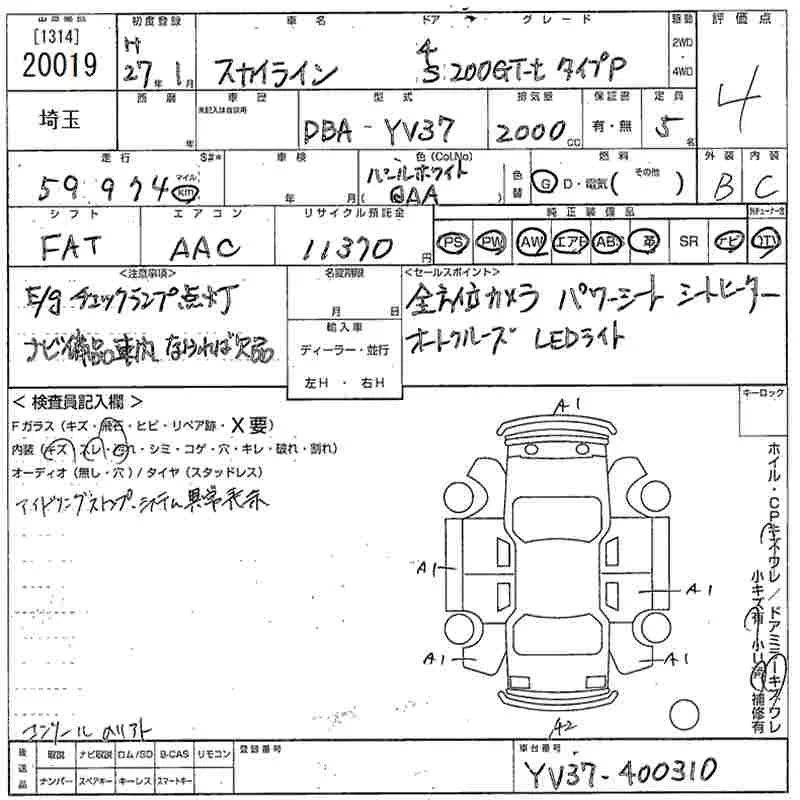 [1314]
20019
埼玉
初度登録
H
27年 1月
車名
スカイライン
ドア
4
5
グレード
200GT-t タイプP
駆動
2WD
・
4WD
評価点
4
年
車歴
未記入は自家用
型式
DBA-YV37
排気量
2000 cc
保証書
有・無
定員
5名
走行
S#*
59974
マイル
km
車検
年 月
色(Col.No)
パールホワイト
(QAA)
色替
燃料
G D・電気( その他 )
外装
B
内装
C
シフト
FAT
エアコン
AAC
リサイクル預託金
11370円
純正装備品
PS PW AW エアB ABS 革 SR ナビ TV
<注意事項>
E/g チェックランプ点灯
ナビ備品車内なければ欠品
名変期限
月 日
輸入車
ディーラー・並行
左H ・ 右H
<セールスポイント>
全方位カメラ パワーシート シートヒーター
オートクルーズ LEDライト
< 検査員記入欄 >
Fガラス(キズ・飛石・ヒビ・リペア跡・X要)
内装(キズ・スレ・汚れ・シミ・コゲ・穴・キレ・破れ・割れ)
オーディオ(無し・穴)/タイヤ(スタッドレス)
アイドリングストップシステム異常表示
キーロック
ホイル・CPキズウレ/ドアミラーキズワレ
小キズ有・小凹有・補修有
A1
A1
A1
A1
A1
A2
後送品
取説 ナビ取説 ロム/SD B-CAS リモコン
ナンバー スペアキー キーレス スマートキー
登録番号
車台番号
YV37-400310